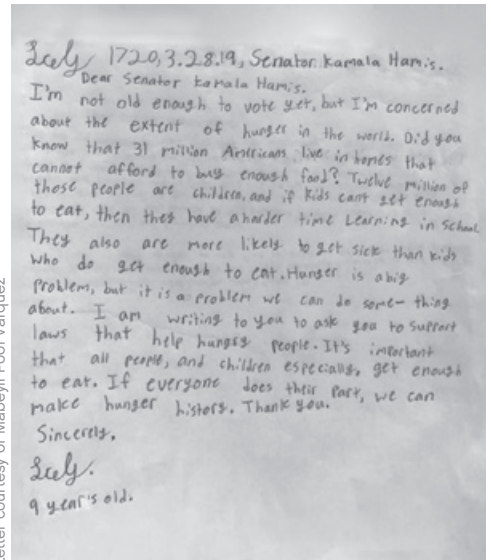 Lesly 1720,3.28.19, Senator Kamala Harris.
Dear Senator Kamala Harris.
I'm not old enough to vote yet, but I'm concerned
about the extent of hunger in the world. Did you
know that 31 million Americans live in homes that
cannot afford to buy enough food? Twelve million of
those people are children, and if kids cant get enough
to eat, then they have a harder time Learning in school.
They also are more likely to get sick than kids
who do get enough to eat. Hunger is a big
Problem, but it is a problem we can do some-thing
about. I am writing to you to ask you to support
laws that help hungry people. It's important
that all people, and children especially, get enough
to eat. If everyone does their part, we can
make hunger history. Thank you.
Sincerely.
Lesly.
9 year's old.
Letter courtesy of Mabeyli Pool Varquez